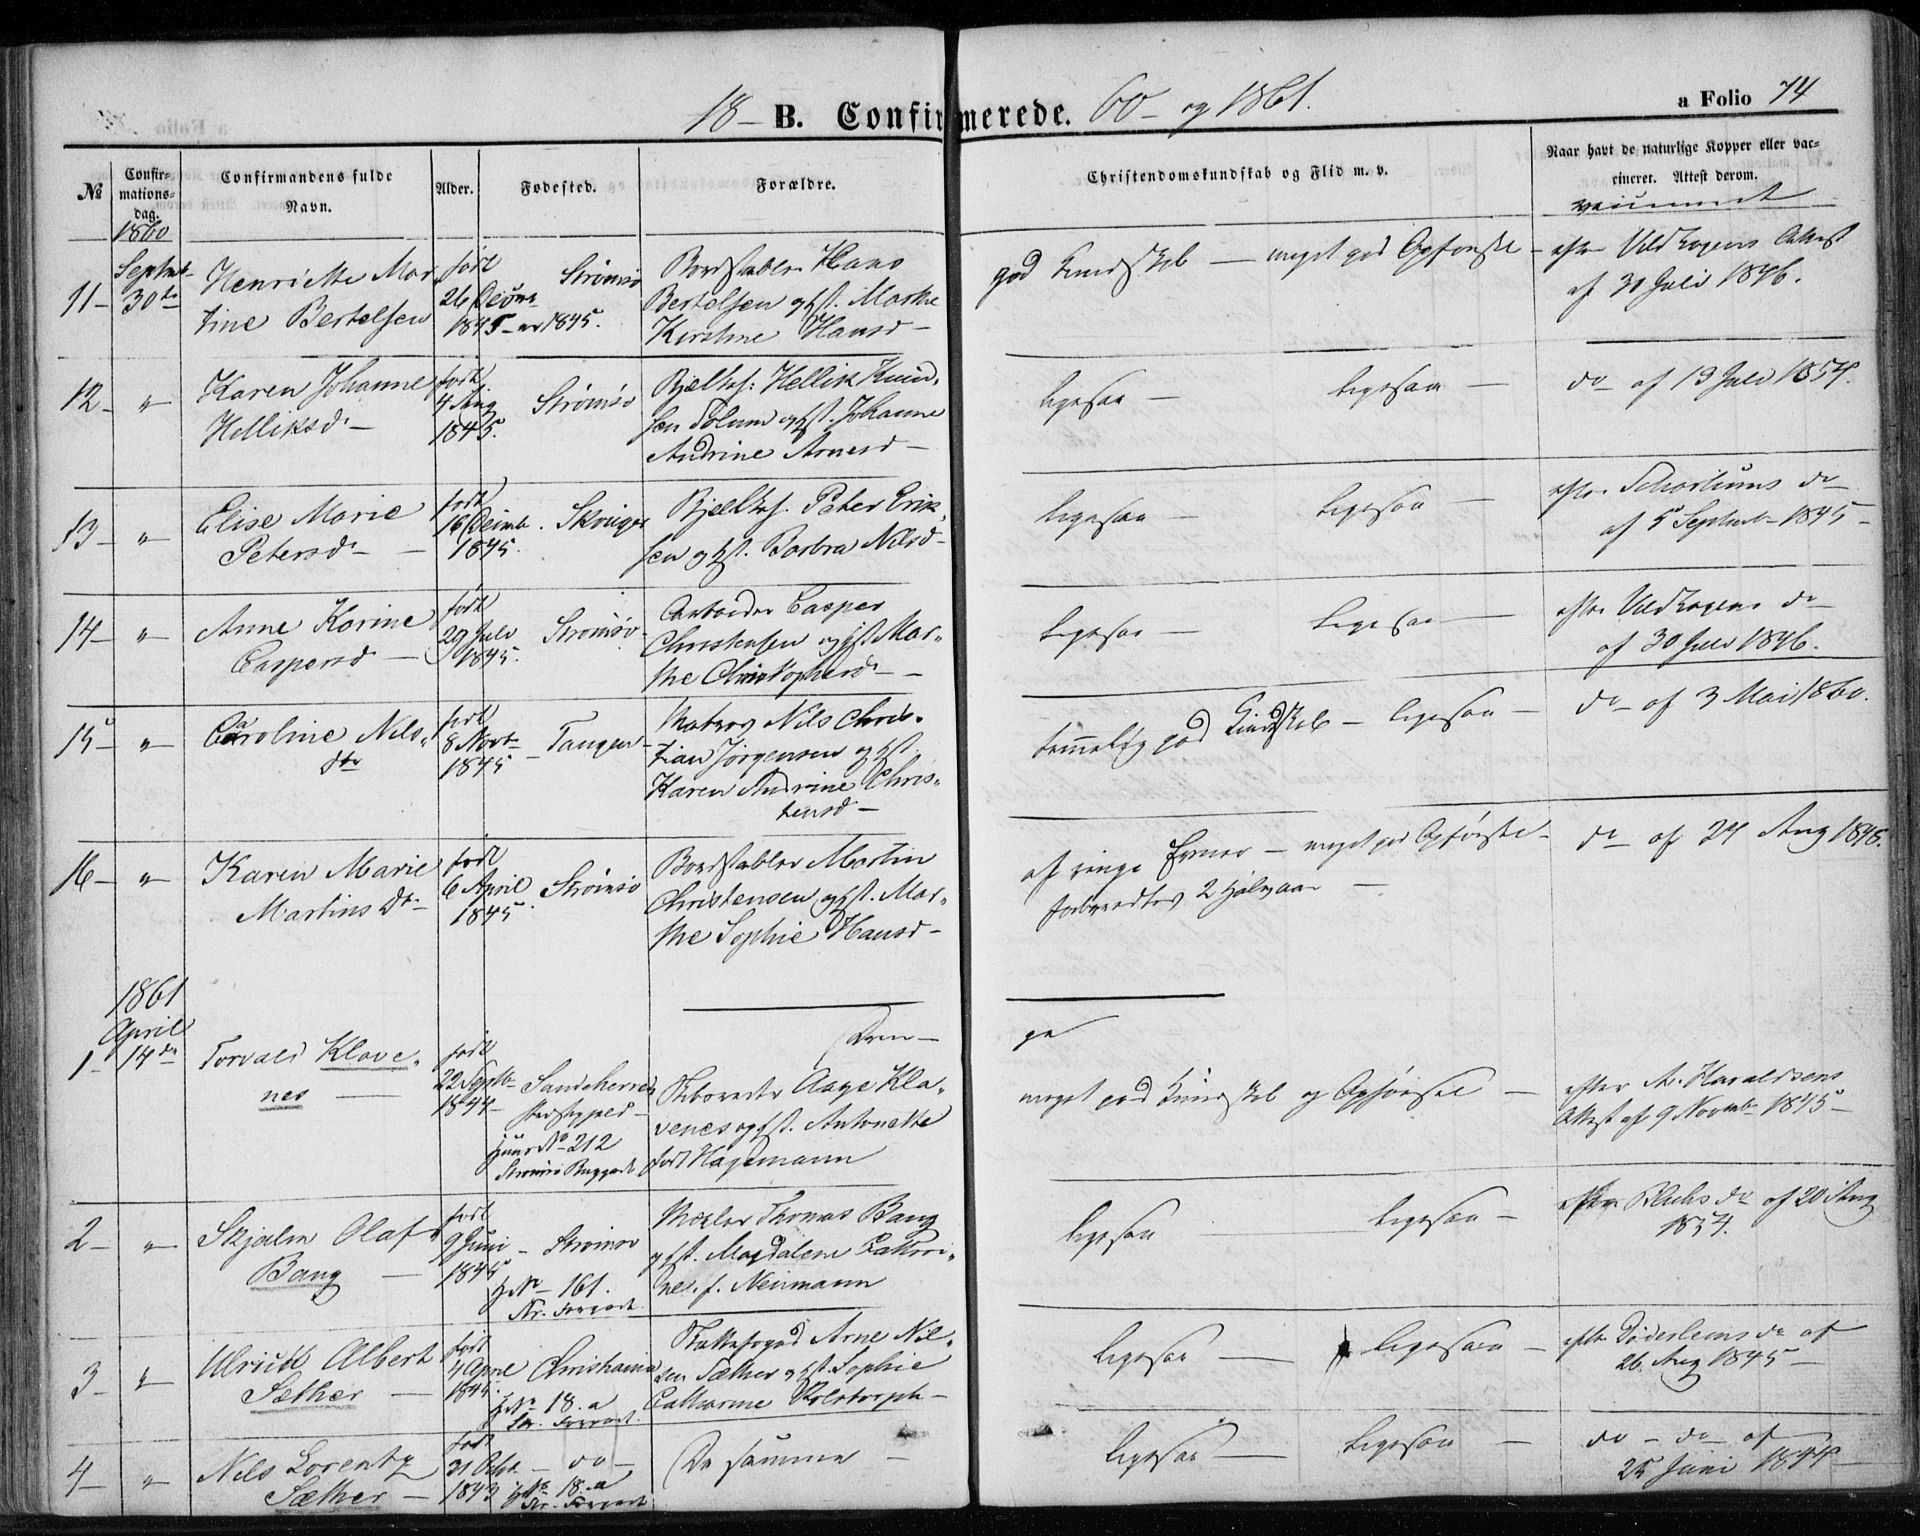 18- B. Confirmerede. 60- og 1861.
a Folio 74
№
Confir-
mations-
dag.
Confirmandens fulde
Navn.
Alder.
Fødested.
Forældre.
Christendomskundskab og Flid m. v.
Naar havt de naturlige Kopper eller vac-
cineret. Attest derom.
1860
11- Septbr
30te
Henriette Mar
tine Bertelsen
født
26
1845
Strømsø
1845.
Bordstabler Hans
Bertelsen og H. Marthe
Kirstine Hansd-
god Kundskab - meget god Opførsel -
efter Attest
af 30 Juli 1846.
12- "
Karen Johanne
Helliksd-
født
4 Aug
1845.
Strømsø
Hellik Knud-
sen og H. Johanne
Andrine Arnesd-
ligesaa - ligesaa -
do af 19 Juli 1854.
13- "
Elise Marie
Petersd-
født
16
1845.
Peter Erik-
sen og H. Barbra Nilsd-
ligesaa - ligesaa -
do
af 5 Septbr 1845-
14- "
Anne Karine
Caspersd-
født
29 Juli
1845.
Strømsø-
Arbeider Casper
Christensen og H. Mar-
the Christophersd-
ligesaa - ligesaa -
do
af 30 Juli 1846.
15- "
Caroline Nils-
dtr
født
8 Novbr
1845
- Tangen-
Matros Nils Chris-
tian Jørgensen og H.
Karen Andrine Chris-
tensd-
temmelig god Kundskab - ligesaa -
do af 3 Mai 1860.
16- "
Karen Marie
Martins Dtr
født
6 April
1845.
Strømsø
Bordstabler Martin
Christensen og H. Mar-
the Sophie Hansd-
af ringe Evner - meget god Opførsel -
forberedtes 2 halvaar -
do af 24 Aug 1848.
1861
April
1- 14de
Torvald Klave-
nes
født
22 Septbr
1844-
Sandeherred
Huus No 212
Strømsø
Aage Kla-
venes og H. Antonette
født Hagemann
meget god Kundskab og Opførsel -
efter A. Haraldsens
Attest af 9 Novembr 1845-
2- "
Skjalm Olaf
Bang
født
9 Juni
1845
- Strømsø
H No 161.
Mægler Thomas Bang
og H. Magdalene Cathri-
ne f. Neumann
ligesaa - ligesaa -
efter do af 20 Aug
1854.
3- "
Ulrick Albert
Sæther -
født
4 April
1845.
Christiania
H No 18.a
Arne Nil-
sen Sæther og H. Sophie
Catharine
ligesaa - ligesaa -
efter Døderleins do af
26 Aug 1845-
4- "
Nils Lorentz
Sæther -
født
31
1843
- do -
H No 18.a
De samme -
ligesaa - ligesaa -
do - do - af
25 Juni 1844-